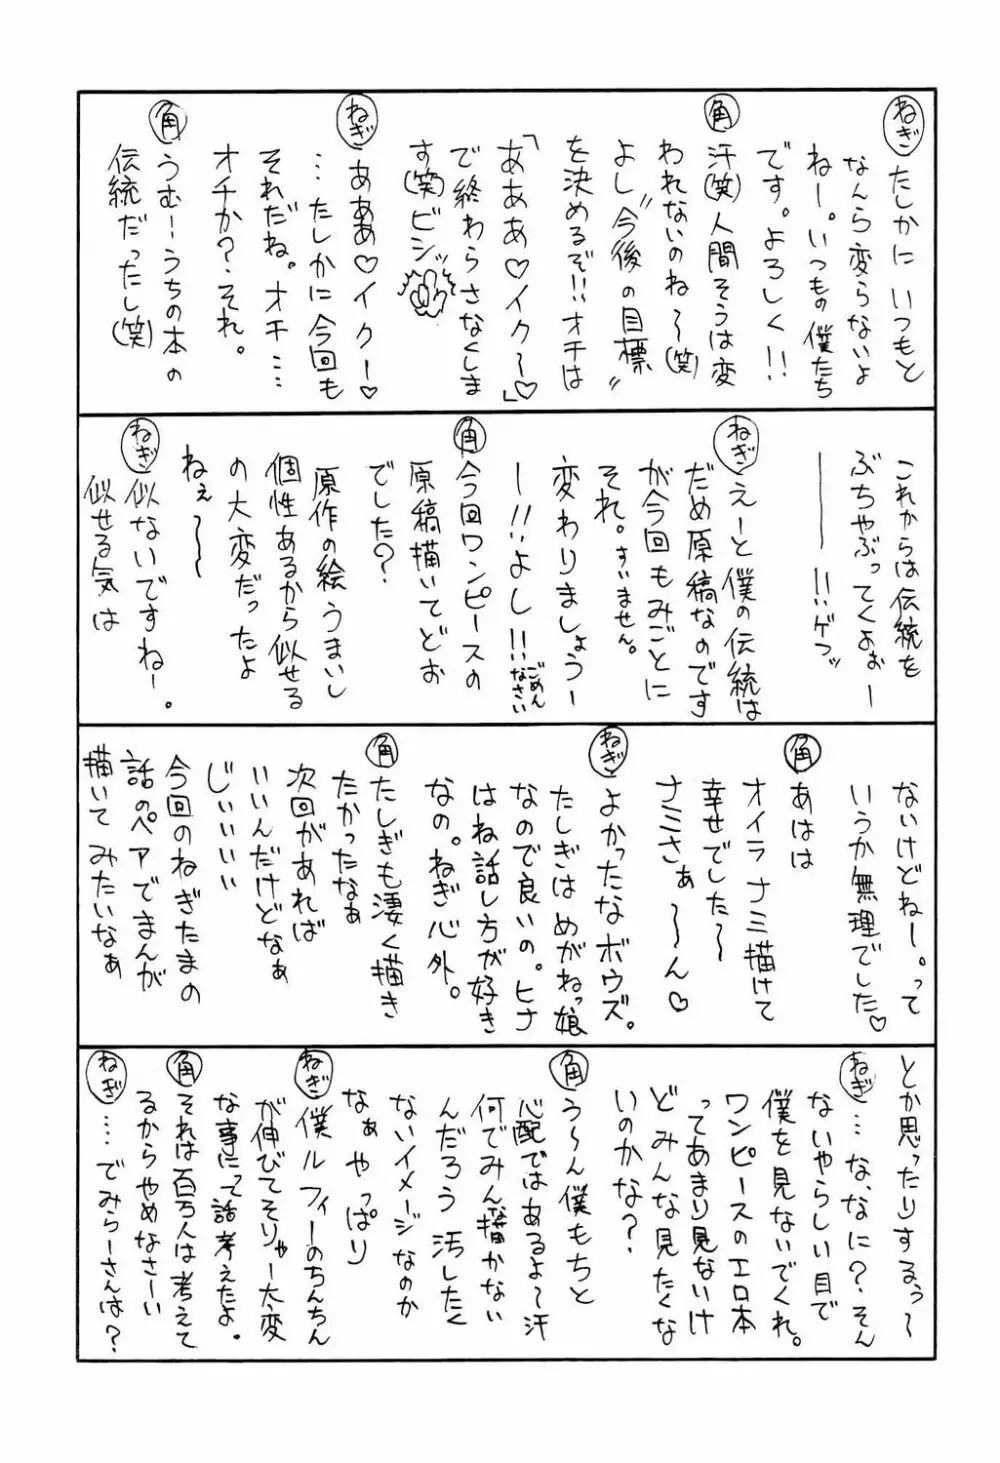 ねぎ たしかにいつもと
なんら変らないよ
ねー。いつもの僕たち
です。よろしく!!
角 汗(笑)人間そうは変
われないのね〜(笑)
よし“今後の目標”
を決めるぞ!!オチは
「あああ♡イク〜」♡
で終わらさなくしま
す(笑)ビシッ
ねぎ あああ♡イクー♡
…たしかに今回も
それだね。オチ……
オチか?それ。
角 うむーうちの本の
伝統だったし(笑)
これからは伝統を
ぶちやぶってくよぉー
―――!!ゲフッ
ねぎ えーと僕の伝統は
だめ原稿なのです
が今回もみごとに
それ。すいません。
変わりましょうー
ー!!よし!!ごめんなさい
角 今回ワンピースの
原稿描いてどお
でした?
原作の絵うまいし
個性あるから似せる
の大変だったよ
ねぇ〜〜
ねぎ 似ないですねー。
似せる気は
ないけどねー。って
いうか無理でした♡
角 あはは
オイラナミ描けて
幸せでした〜
ナミさぁ〜〜ん♡
ねぎ よかったなボウズ。
たしぎはめがねっ娘
なので良いの。ヒナ
はね話し方が好き
なの。ねぎ心外。
角 たしぎも凄く描き
たかったなぁ
次回があれば
いいんだけどなぁ
じぃぃぃぃ
今回のねぎたまの
話のペアでまんが
描いてみたいなぁ
とか思ったりするぅ〜
ねぎ …な、なに?そん
ないやらしい目で
僕を見ないでくれ。
ワンピースのエロ本
ってあまり見ないけ
どみんな見たくな
いのかな?
角 う〜ん僕もちと
心配ではあるよ〜汗
何でみんな描かない
んだろう汚したく
ないイメージなのか
なぁやっぱり
ねぎ 僕ルフィーのちんちん
が伸びてそりゃー大変
な事にって話考えたよ。
角 それは百万人は考えて
るからやめなさーい
ねぎ ……でみらーさんは?